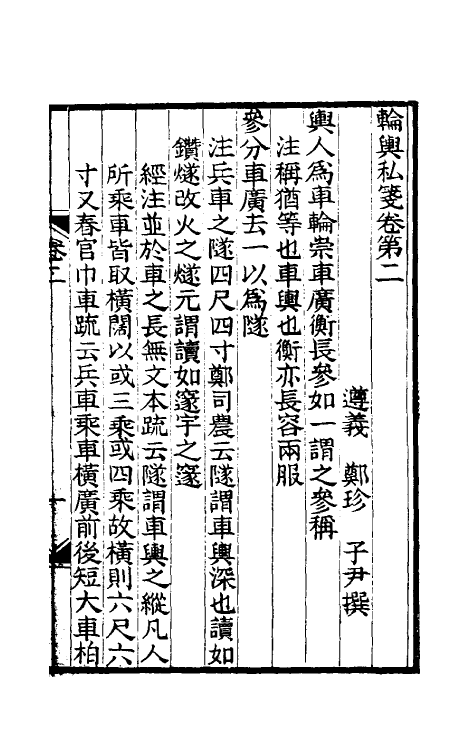 輪輿私箋卷第二
遵義　鄭珍　子尹撰
輿人爲車輪崇車廣衡長參如一謂之參稱
注稱猶等也車輿也衡亦長容兩服
參分車廣去一以爲隧
注兵車之隧四尺四寸鄭司農云隧謂車輿深也讀如
鑽燧改火之燧元謂讀如邃宇之邃
經注並於車之長無文本疏云隧謂車輿之縱凡人
所乘車皆取橫闊以或三乘或四乘故橫則六尺六
寸又春官巾車疏云兵車乘車橫廣前後短大車柏
卷二
一